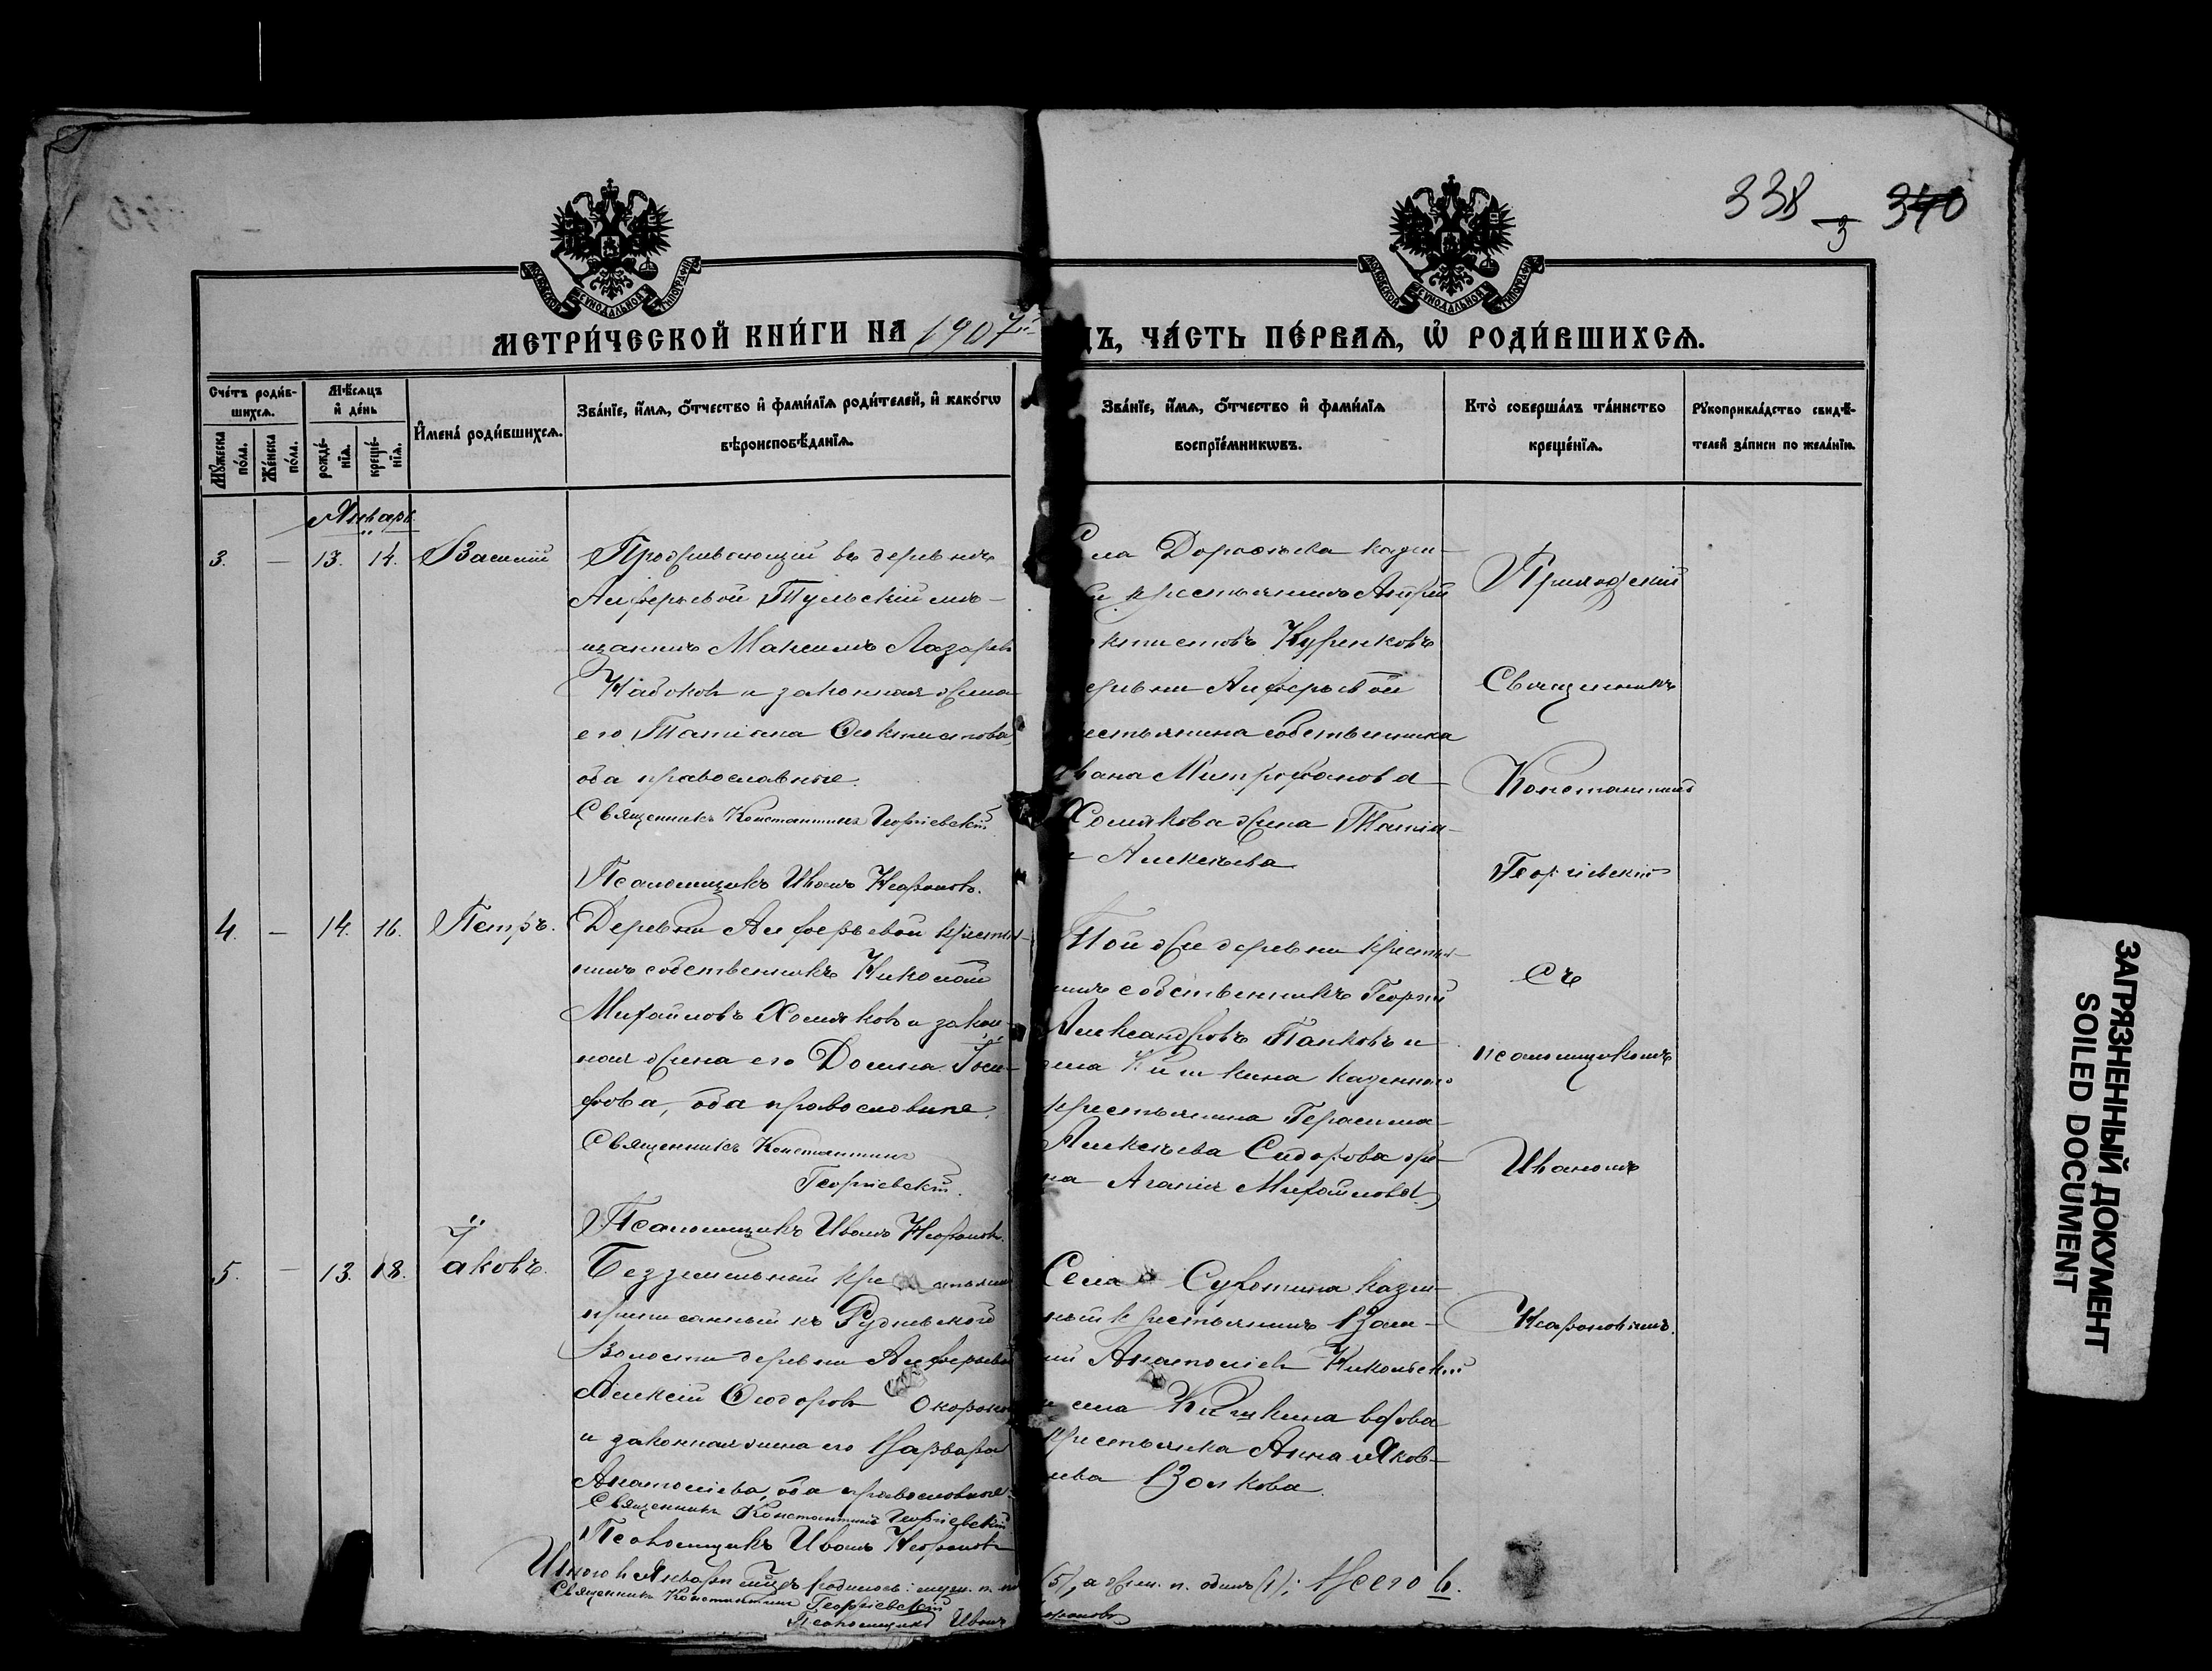 338 3 340
МОСКОВСКОЙ СѴНОДАЛЬНОЙ ТИПОГРАФІИ
МОСКОВСКОЙ СѴНОДАЛЬНОЙ ТИПОГРАФІИ
МЕТРИ́ЧЕСКОЙ КНИ́ГИ НА 1907й
ДЪ, ЧА́СТЬ ПЕ́РВАѦ, Ѡ҆ РОДИ́ВШИХСѦ.
Сче́тъ роди́в-
шихсѧ.
Мѹ́жеска по́ла.
Же́нска по́ла.
Мѣ́сѧцъ
и҆ де́нь
рожде́-
нїѧ.
креще́-
нїѧ.
И҆мена̀ роди́вшихсѧ.
Зва́нїе, и҆́мѧ, ѻ҆́тчество и҆ фами́лїѧ роди́телей, и҆ како́гѡ
вѣроисповѣ́данїѧ.
Зва́нїе, и҆́мѧ, ѻ҆́тчество и҆ фами́лїѧ
воспрїе́мникѡвъ.
Кто̀ соверша́лъ та́инство
креще́нїѧ.
Рꙋкоприкла́дство свидѣ́-
телей за́писи по жела́нїю.
Январь
3. — 13. 14. Василій
Проживающій въ деревнѣ
Алферьевой Тульскій мѣ-
щанинъ Максимъ Лазаревъ
Набоковъ и законная жена
его Татіана Ѳеоктистова,
оба православные.
Священникъ Константинъ Георгіевскій
Псаломщикъ Иванъ
ела казен-
крестьянинъ
ктистовъ Куренковъ
еревни Алферьевой
естьянина собственника
вана Митрофанова
Хомякова жена Татіа-
Алексѣева
Приходскій
Священникъ
Константинъ
Георгіевскій
4. — 14. 16. Петръ.
Деревни Алферьевой крестья-
нинъ собственникъ Николай
Михайловъ Хомяковъ и закон-
ная жена его Домна Іоси-
фова, оба православные.
Священникъ Константинъ
Георгіевскій.
Псаломщикъ Иванъ
Той же деревни крестья-
нинъ собственникъ Георгій
Александровъ Панковъ и
села Кишкина казеннаго
крестьянина Герасима
Алексѣева Сидорова же-
на Агапія Михайлова
Съ
псаломщикомъ
Иваномъ
5. — 13. 18. Іаковъ.
Безземельный крестьянинъ
приписанный къ Рудневской
Волости деревни Алферьевой
Алексій Ѳеодоровъ Окороков
и законная жена его Варвара
Анатоліева, оба православные.
Священникъ Константинъ Георгіевскій
Псаломщикъ Иванъ
Села Сукотина казен-
ный крестьянинъ Васи-
лій Анатоліевъ Никольскій
и села Кишкина вдова
крестьянка Анна Яков-
лева Волкова.
Итого въ Январѣ мцѣ родилось: муж. п.
(5), а жен. п. одинъ (1); Всего 6.
Священникъ Константинъ Георгіевскій
Псаломщикъ Иванъ
ЗАГРЯЗНЕННЫЙ ДОКУМЕНТ
SOILED DOCUMENT